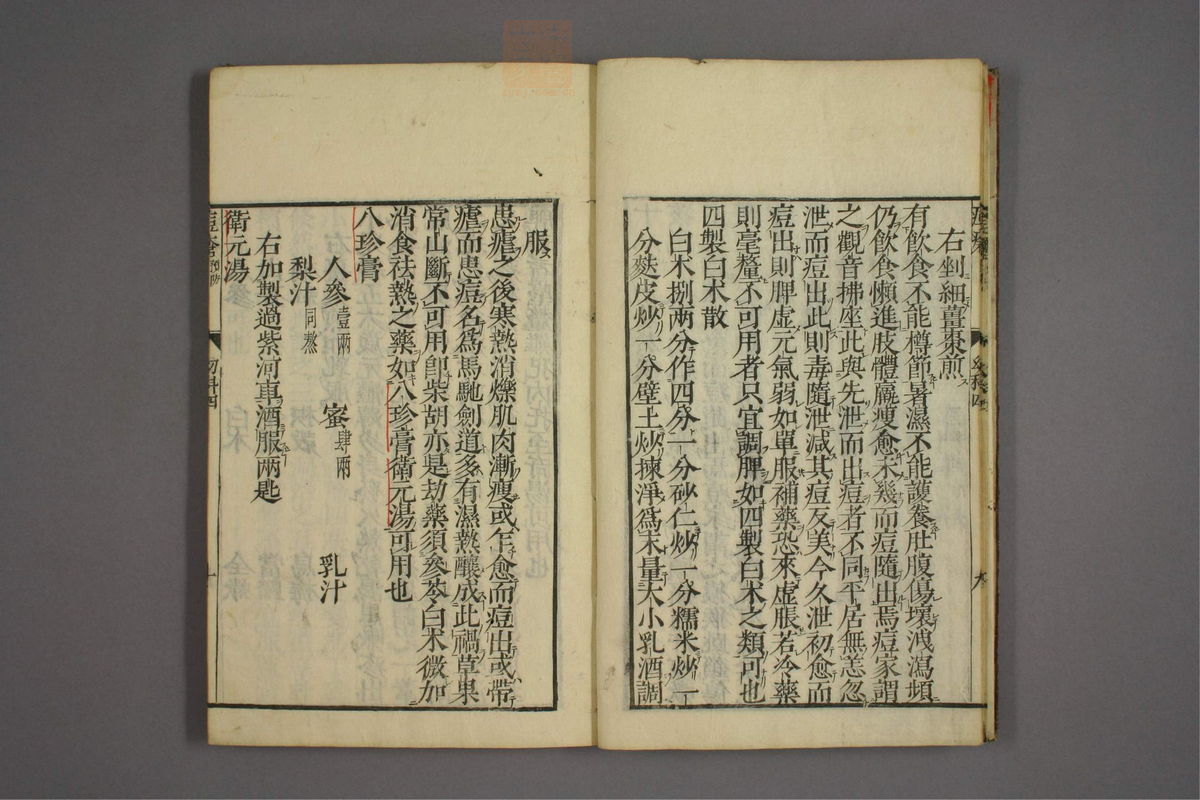 右剉細薑棗煎
有飲食不能樽節暑濕不能護養肚腹傷壞洩瀉頻
仍飲食懶進肢體羸瘦愈未幾而痘隨出焉痘家謂
之觀音拂座此與先泄而出痘者不同平居無恙忽
泄而痘出此則毒隨泄減其痘反美今久泄初愈而
痘出則脾虛元氣弱如單服補藥恐來虛脹若冷藥
則毫釐不可用者只宜調脾如四製白朮之類可也
四製白朮散
白朮捌兩分作四分一分砂仁炒一分糯米炒一
分麩皮炒一分壁土炒揀淨爲末量大小乳酒調
服
患瘧之後寒熱消爍肌肉漸瘦或乍愈而痘出或帶
瘧而患痘名爲馬馳劍道多有濕熱釀成此禍草果
常山斷不可用卽柴胡亦是劫藥須參苓白朮微加
消食祛熱之藥如八珍膏衛元湯可用也
八珍膏
人參壹兩 蜜肆兩 乳汁
梨汁同熬
右加製過紫河車酒服兩匙
衛元湯